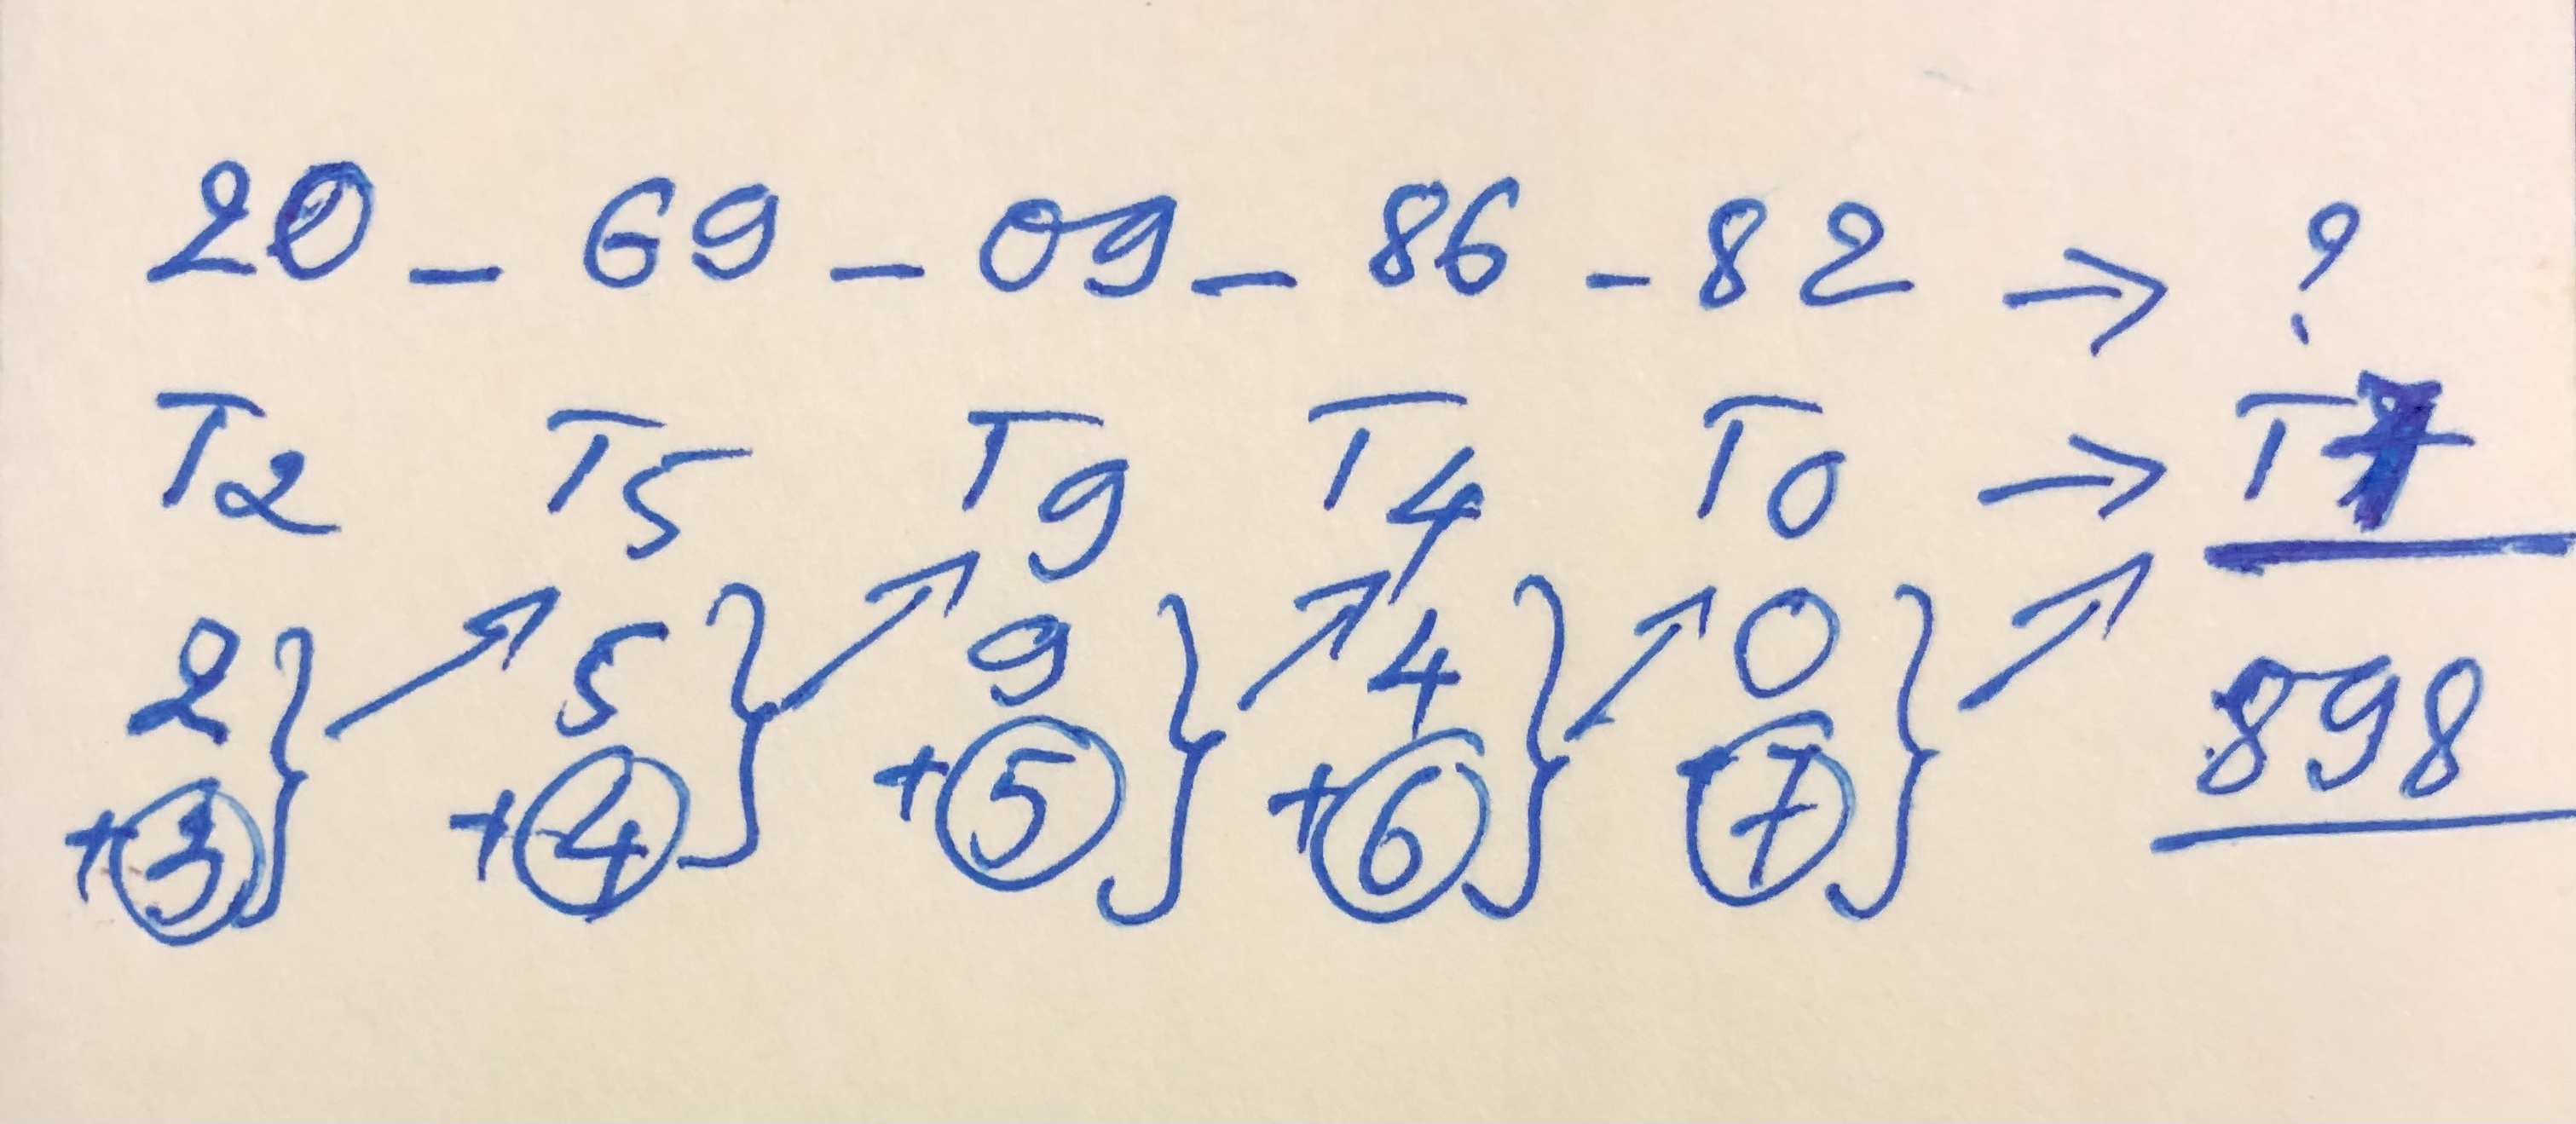 20 - 69 - 09 - 86 - 82 → ?
T2 T5 T9 T4 T0 → T7
2 } ↗ 5 } ↗ 9 } ↗ 4 } ↗ 0 } ↗ 898
+3 +4 +5 +6 +7